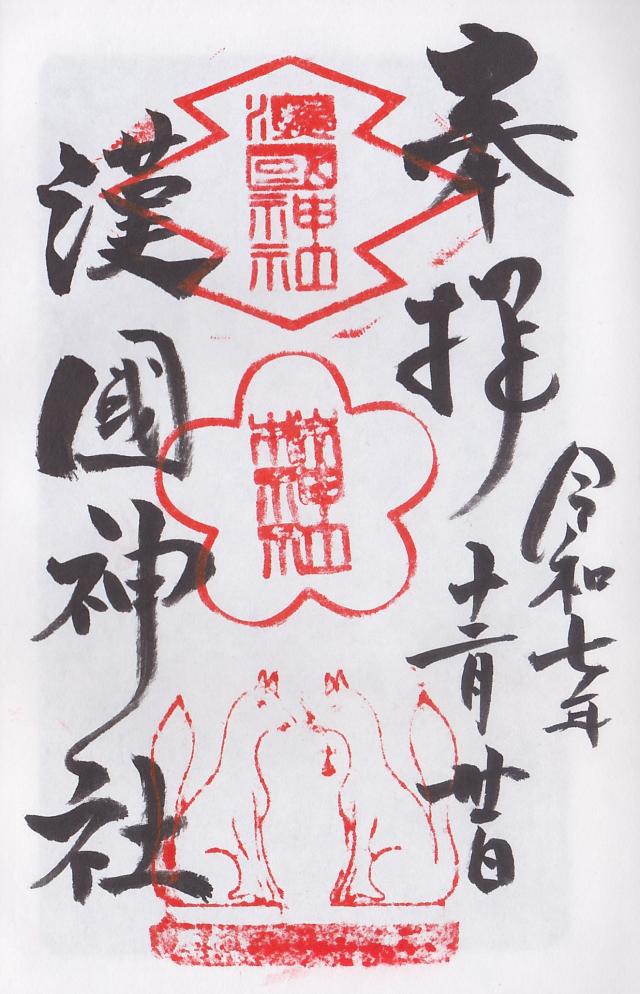 奉拝
令和七年
十二月廿日
漢國神社
漢國神社
林神社
漢國神社